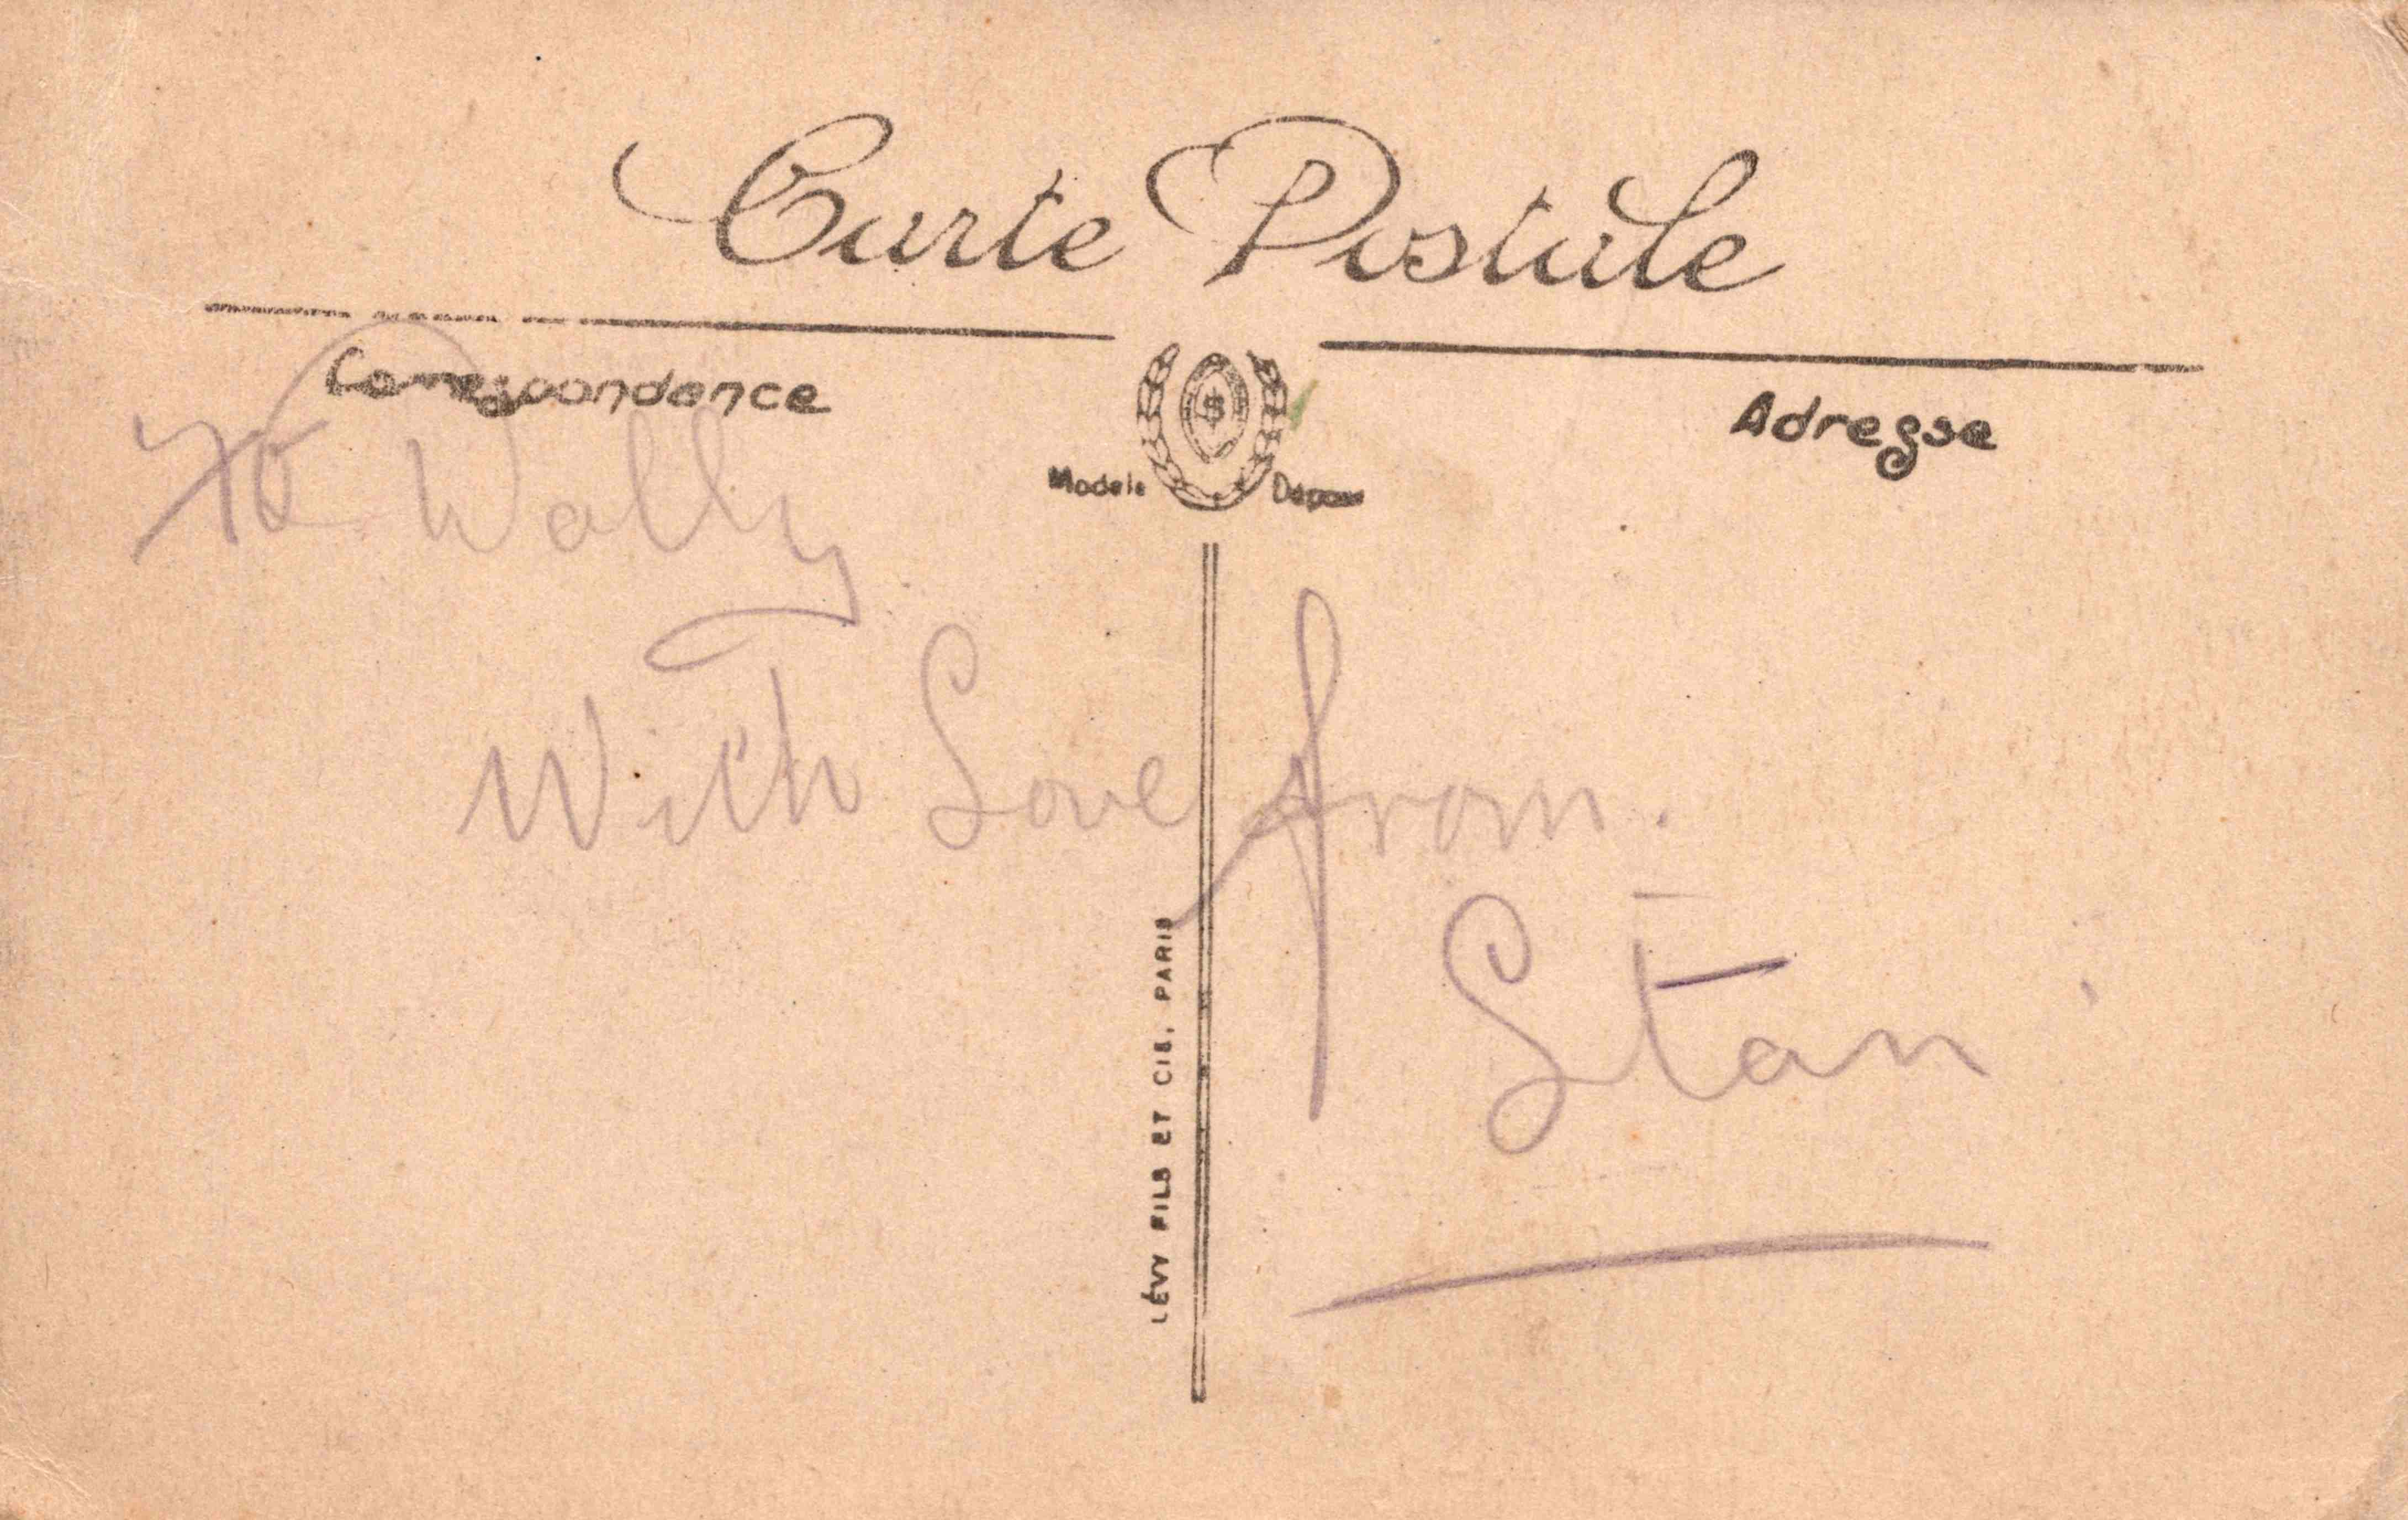 Carte Postale
Correspondance
Adresse
Modèle Déposé
$
To Wally
With Love from.
Stan
LÉVY FILS ET CIE, PARIS